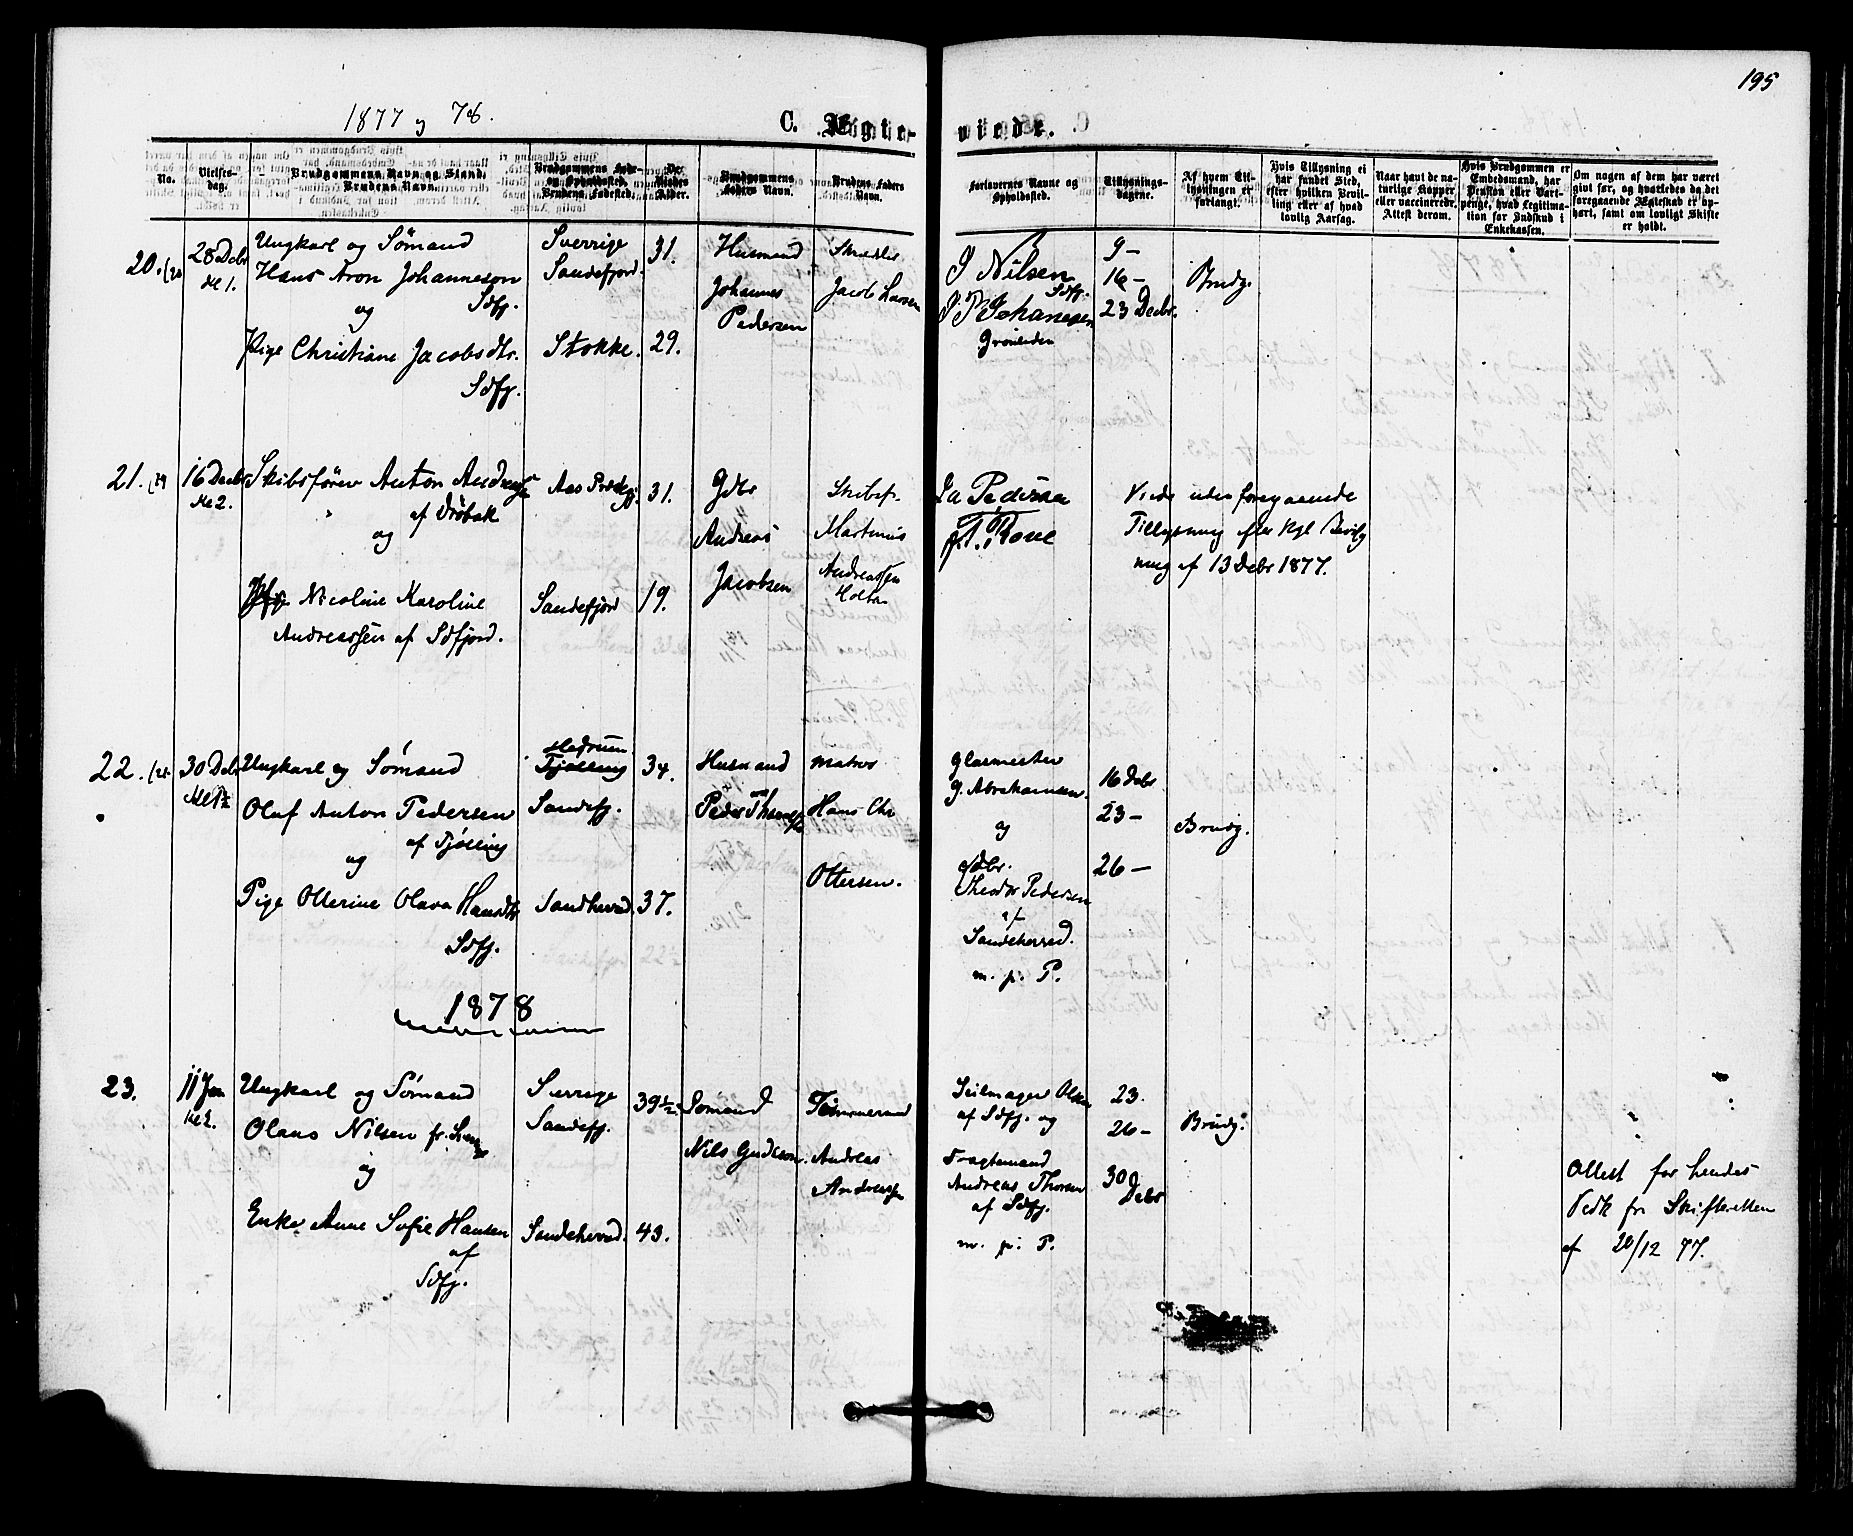 195
1877 og 78.
C. Ægte-
viede.
No.
Vielses-
dag.
Brudgommens Navn og Stand.
Brudens Navn.
Brudgommens Føde-
og Opholdssted.
Brudens Fødested.
De
Viedes
Alder.
Brudgommens
Faders Navn.
Brudens Faders
Navn.
Forlovernes Navne og
Opholdssted.
Tillysnings-
dagene.
Af hvem Til-
lysningen er
forlangt.
Hvis Tillysning ei
har fundet Sted,
efter hvilken Bevil-
ling eller af hvad
lovlig Aarsag.
Naar havt de na-
turlige Kopper
eller vaccinerede.
Attest derom.
Hvis Brudgommen er
Embedsmand, har
Pension eller Vart-
penge, hvad Legitima-
tion for Indskud i
Enkekassen.
Om nogen af dem har været
givt før, og hvorledes da det
foregaaende Ægteskab er op-
hørt, samt om lovligt Skifte
er holdt.
20.
28 Debr
Kl 1.
Ungkarl og Sømand
Hans Aron Johanneson
Sdfj.
og
Pige Christiane Jacobsdtr.
Sdfj.
Sverrige
Sandefjord.
Stokke.
31.
29.
Husmand
Johannes
Pedersen
Jacob Larsen
J Nilsen
Sdfj.
J P Johanesen
9 —
16 —
23 Decbr.
Brudg.
21.
16 Decbr
Kl 2.
Skibsfører Anton Andreas
af Drøbak
og
Nicoline Karoline
Andreassen af Sdfjord.
Aas Prstegj.
Sandefjord
31.
19.
Gdbr
Andreas
Jacobsen
Skibsf.
Martinius
Andreassen
Holtan
Pedersen
Viede uden foregaaende
Tillysning efter Kgl Bevilg
ning af 13 Debr 1877.
22.
30 Debr
Ungkarl og Sømand
Oluf Anton Pedersen
af Tjølling
og
Pige Otterine Olava Hansdtr
Sdfj.
Hedrum
Tjølling
Sandefj.
Sandherred.
34.
37.
Husmand
Peder
Matros
Hans Chr
Ottersen.
Glarmester
G. Abrahamsen.
og
Gdbr.
Theodor Pedersen
af
Sandeherred.
m. p. P.
16 Debr
23 —
26 —
Brudg.
1878
23.
11 Jan
Kl 2.
Ungkarl og Sømand
Olaus Nilsen
og
Enke Anne Sofie Hansen
af
Sdfj.
Sverrige
Sandefj.
Sandeherred.
39½.
43.
Sømand
Nils Gudeson.
Tømmermand
Andreas
Andreassen
Seilmager Olsen
af Sdfj. og
Fragtemand
Andreas Thorsen
af Sdfj.
m. p. P.
23.
26 —
30 Debr
Brudg.
Attest for hendes
Vedk fr Skifteretten
af 20/12 77.